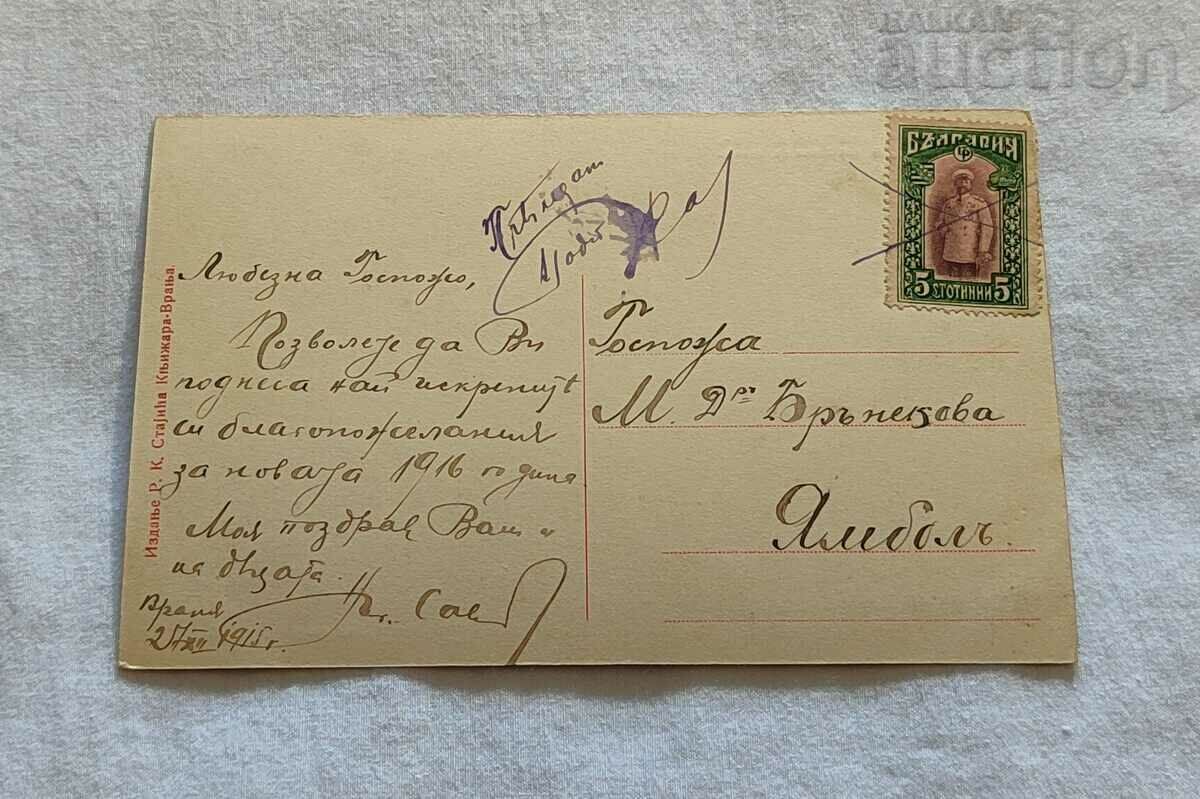 БАЛКАН
auction
БЪЛГАРИЯ
5 СТОТИНКИ 5
Любезна Госпожо,
Позволете да Ви
поднеса най искренитѣ
си благопожелания
за новата 1916 година
Моя поздрав Вам и
на дѣцата.
Враня
27/XII 1915 г.
Госпожа
М. Д-ръ Брънекова
Ямболъ.
Издање Р. К. Стајића Књижара-Врања.